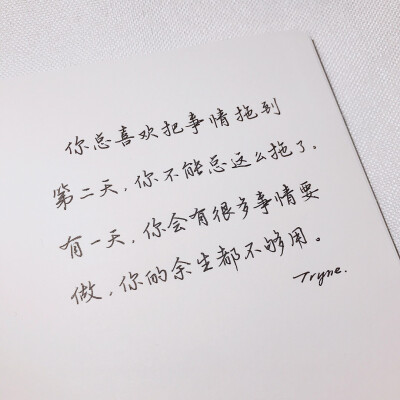 你总喜欢把事情拖到
第二天，你不能总这么拖了。
有一天，你会有很多事情要
做，你的余生都不够用。
Tryne.